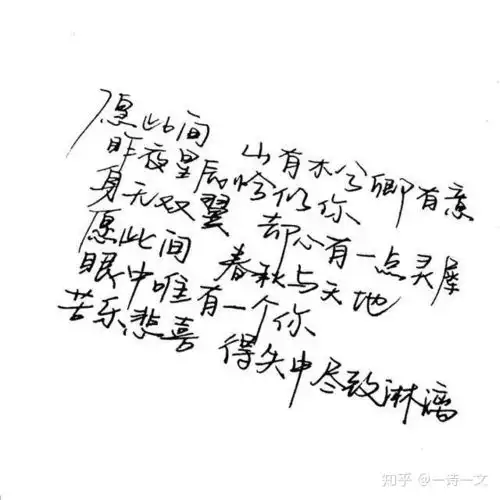 愿此间 山有木兮卿有意
昨夜星辰恰似你
身无双翼 却心有一点灵犀
愿此间 春秋与天地
眼中唯有一个你
苦乐悲喜 得失中尽致淋漓
知乎 @一诗一文